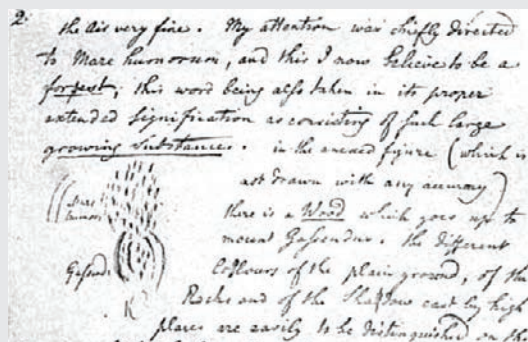 2.
the air very fine. My attention was chiefly directed
to Mare humorum, and this I now believe to be a
forrest; this word being also taken in its proper
extended signification as consisting of such large
growing substances. in the annexed figure (which is
not drawn with any accuracy)
Mare humor.
there is a Wood which goes up to
mount Gassendus. the different
Gassend.
Colours of the plain ground, of the
Rocks and of the Shadow cast by high
places are easily to be distinguished on the